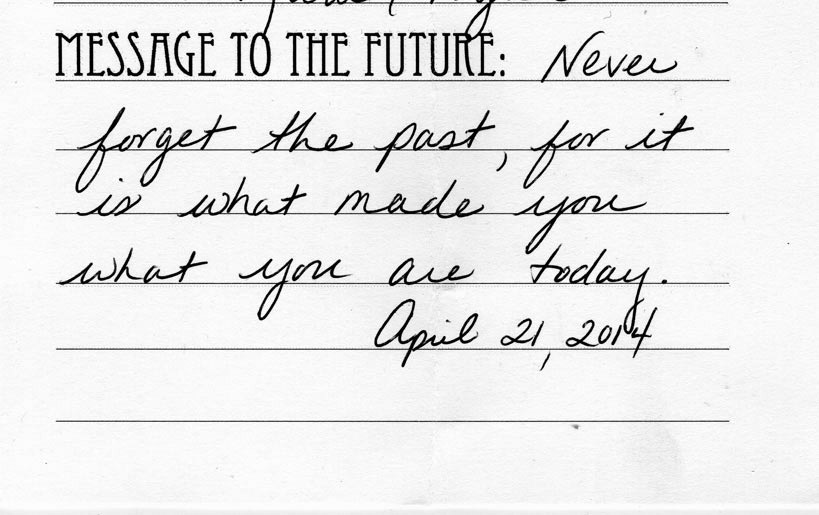 MESSAGE TO THE FUTURE: Never
forget the past, for it
is what made you
what you are today.
April 21, 2014